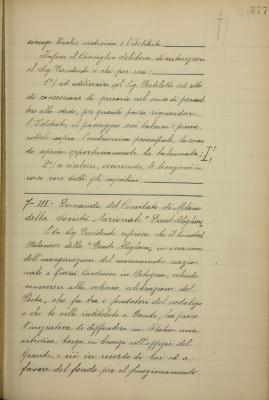 377
vengi Reales mediani e l'Istituto
Infine il Consiglio delibera di autorizzare
il Sig. Presidente o chi per esso:
1°) ad addivenire col Sig. Bertolotto ad atto
di concessione di precario nel senso di permet-
tere allo stesso, per quanto possa riguardare
l'Istituto, il passaggio sui balconi e piano,
nobile sopra l'androncino principale, facen-
do aprire opportunamente la balconata;
2°) a risolvere, occorrendo, le locazioni in
corso con tutti gli inquilini.
7-III- Domanda del Comitato di Milano
della Società Nazionale "Dante Alighieri"
L'On. Sig. Presidente riferisce che il Comitato
Milanese della "Dante Alighieri", in occasione
dell'inaugurazione del monumento nazio-
nale a Giosuè Carducci in Bologna, volendo
concorrere alla solenne celebrazione del
Poeta, che fu tra i fondatori del sodalizio
e che lo volle intitolato a Dante, ha preso
l'iniziativa di diffondere in Italia una
artistica targa in bronzo coll'effigie del
Grande e ciò in ricordo di lui ed a
favore del fondo per il funzionamento